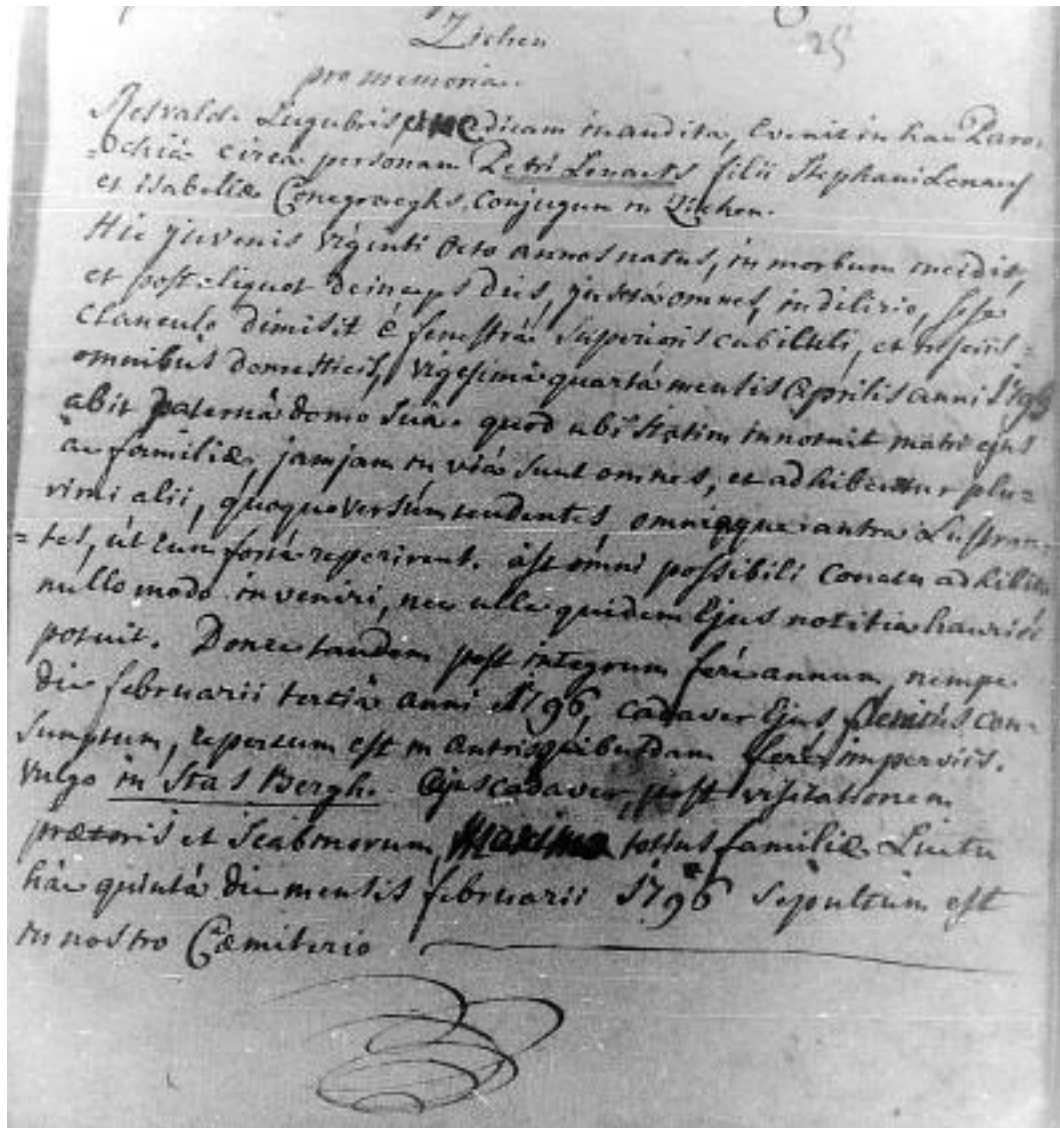 Zichen
25
pro memoria.
Res valde Lugubris, dicam inaudita, Evenit in hac Paro-
=ochiâ circa personam Petri Lenaerts filii Stephani Lenaerts
et isabellæ Conegraeghs, Conjugum in Zichen.
Hic juvenis viginti octo annos natus, in morbum incidit,
et post aliquot deinceps dies, juxta omnes, in delirio, sese
clanculo dimisit è fenestrâ superioris cubiculi, et insciis =
omnibus domesticis, vigesimâ quartâ mensis Aprilis anni 1795
abit paternâ domo suâ. quod ubi statim innotuit matri ejus
ac familiæ, jamjam in viâ sunt omnes, et adhibentur plu-
rimi alii, quoquo versùm tendentes, omniaque antra Lustran-
= tes, ùt eum fortè reperirent. ast omni possibili conatu adhibito
nullo modo inveniri, nec ulla quidem Ejus notitia hauriri
potuit. Donec tandem post integrum ferè annum, nempe
die februarii tertiâ anni 1796, cadaver Ejus penitùs con-
sumptum, repertum est in antris quibusdam ferè imperviis.
vulgo in Stas Bergh. Ejus cadaver, post visitationem
prætoris et Scabinorum, maximo totius familiæ Luctu
hâc quintâ die mensis februarii 1796 sepultum est
in nostro Cæmiterio